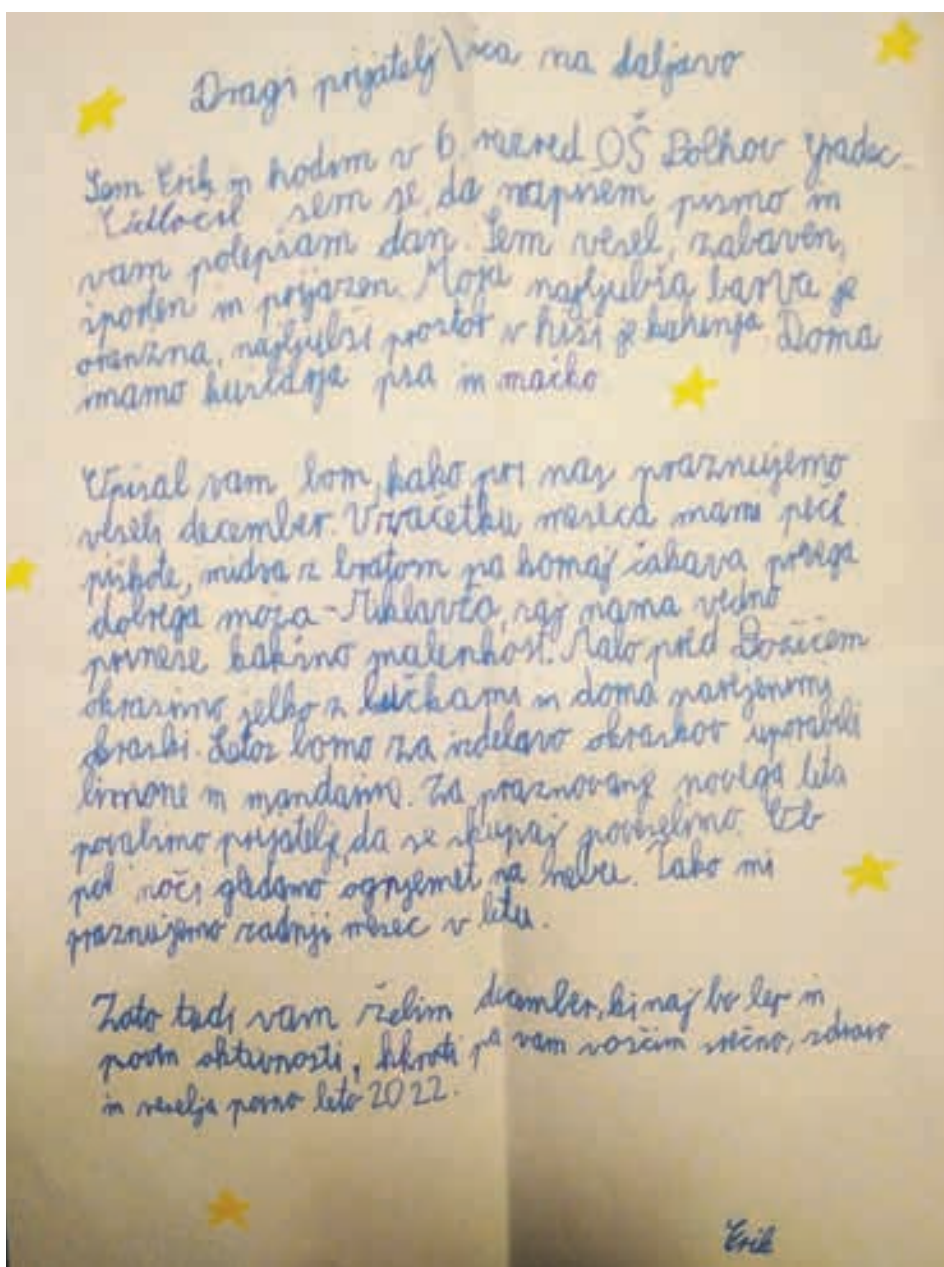 Dragi prijatelj\ica na daljavo
Sem Erik in hodim v 6. razred OŠ Polhov Gradec.
Odločil sem se, da napišem pismo in
vam polepšam dan. Sem vesel, zabaven,
športen in prijazen. Moja najljubša barva je
oranžna, najljubši prostor v hiši je kuhinja. Doma
imamo hišnega psa in mačko.
Opisal vam bom, kako pri nas praznujemo
veseli december. V začetku meseca mami peče
piškote, midva z bratom pa komaj čakava prvega
dobrega moža - Miklavža, saj nama vedno
prinese kakšno malenkost. Malo pred Božičem
okrasimo jelko z lučkami in doma narejenimi
okraski. Letos bomo za izdelavo okraskov uporabili
limone in mandarine. Za praznovanje novega leta
povabimo prijatelje, da se skupaj poveselimo. Ob
pol noči gledamo ognjemet na nebu. Tako mi
praznujemo zadnji mesec v letu.
Zato tudi vam želim december, ki naj bo lep in
poln aktivnosti, hkrati pa vam voščim srečno, zdravo
in veselja polno leto 2022.
Erik